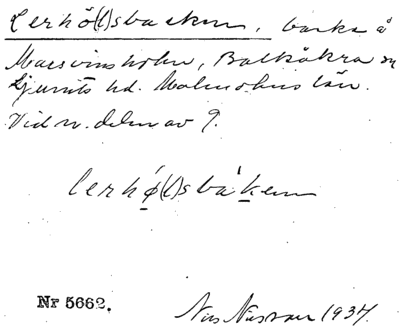 Lerhö(l)sbacken, backe å
Marsvinsholm, Balkåkra sn
Ljunits hd. Malmöhus län.
Vid n. delen av 9.
lerhø(l)sbakenn
Nr 5662. Nils Nilsson 1937.